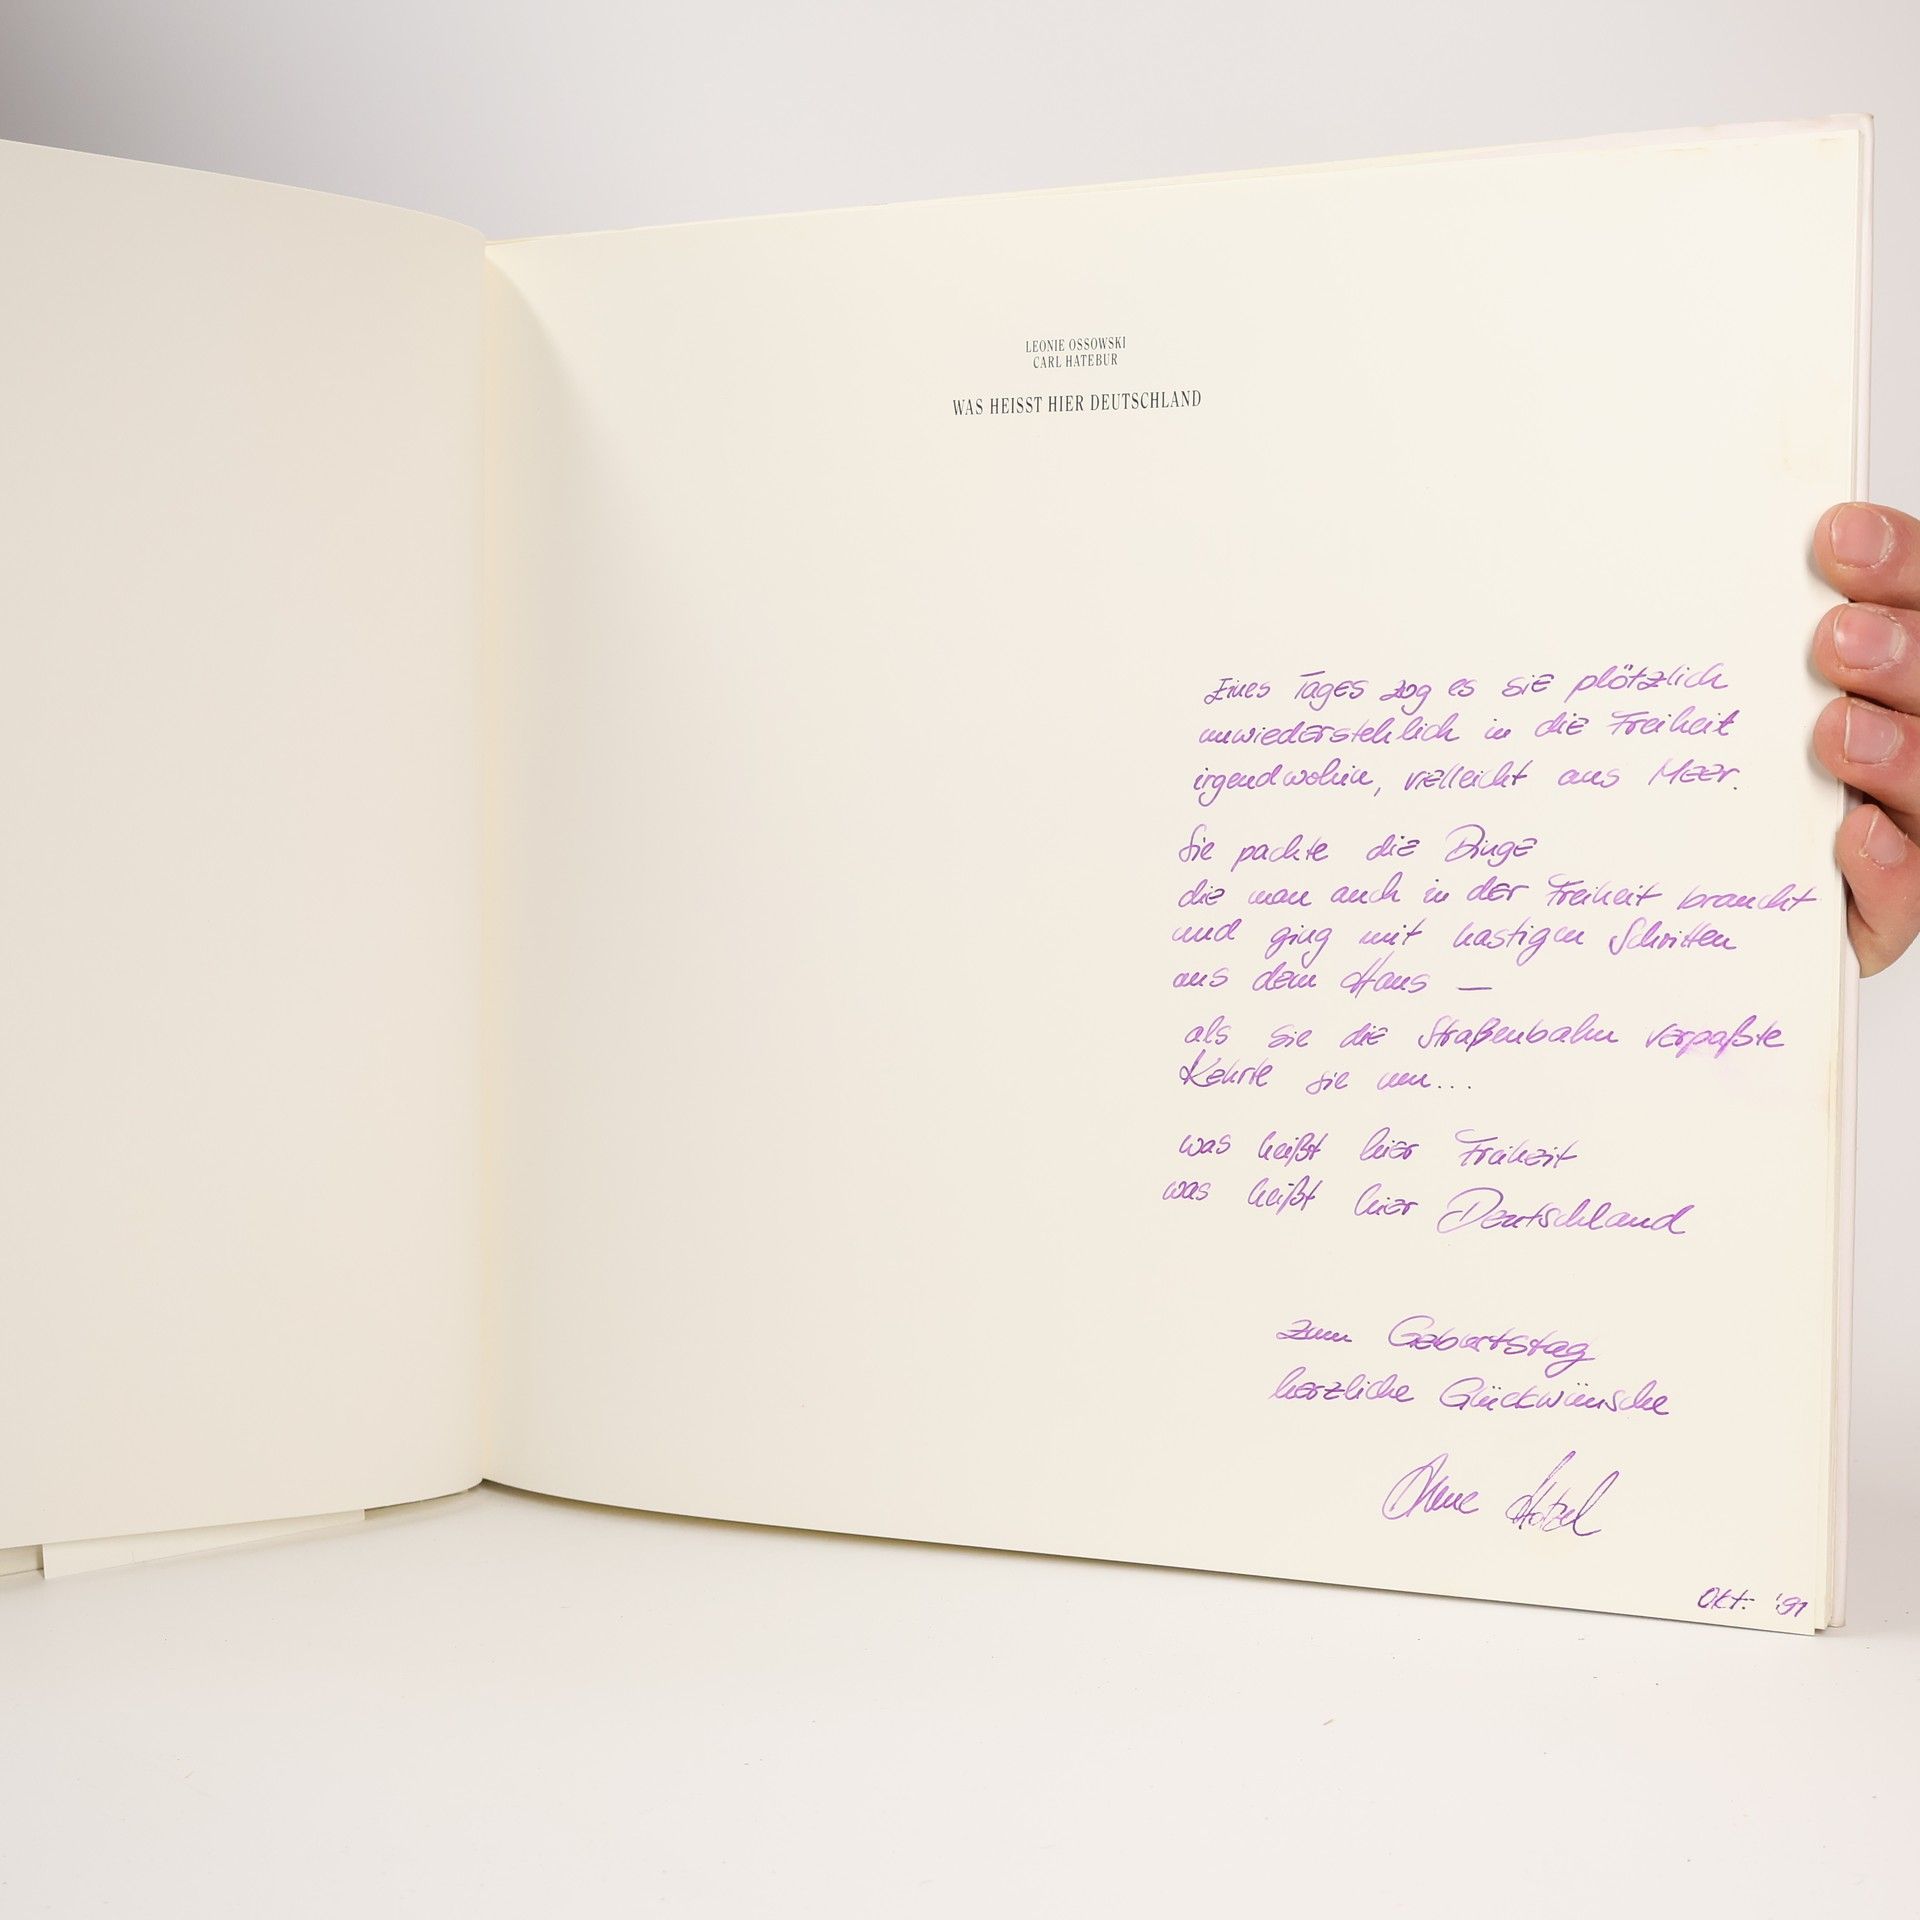 LEONIE OSSOWSKI
CARL HATEBUR
WAS HEISST HIER DEUTSCHLAND
Eines Tages zog es sie plötzlich
unwiederstehlich in die Freiheit
irgendwohin, vielleicht ans Meer.
Sie packte die Dinge
die man auch in der Freiheit braucht
und ging mit hastigen Schritten
aus dem Haus —
als sie die Straßenbahn verpaßte
Kehrte sie um...
was heißt hier Freiheit
was heißt hier Deutschland
zum Geburtstag
herzliche Glückwünsche
Okt. '91